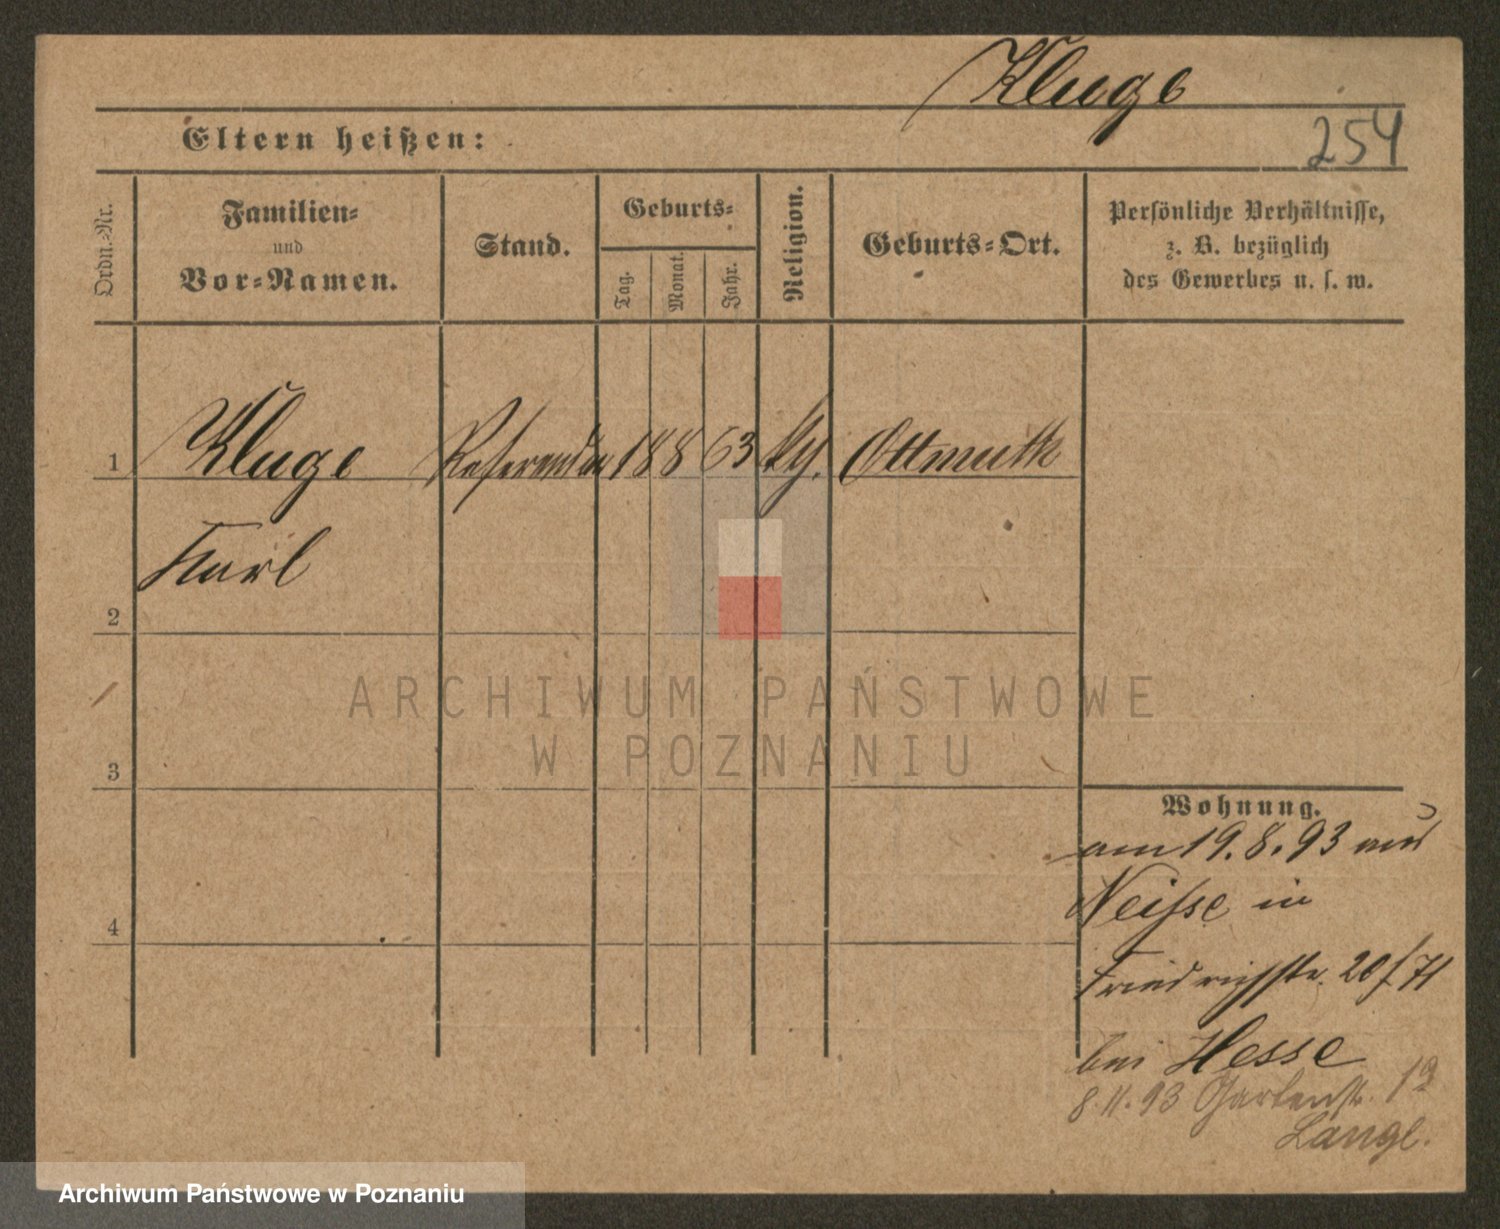 Kluge
254
Eltern heißen:
Ordn.-Nr.
Familien-
und
Vor-Namen.
Stand.
Geburts-
Tag.
Monat.
Jahr.
Religion.
Geburts-Ort.
Persönliche Verhältnisse,
z. B. bezüglich
des Gewerbes u. s. w.
1 Kluge Referendar 18 8 63 Ottmuth
Karl
2
3
4
ARCHIWUM PAŃSTWOWE
W POZNANIU
Wohnung.
am 19.8.93 aus
Neisse in
Friedrichstr. 20/71
bei Hesse
8.11.93 Gartenstr. 12
Langl.
Archiwum Państwowe w Poznaniu